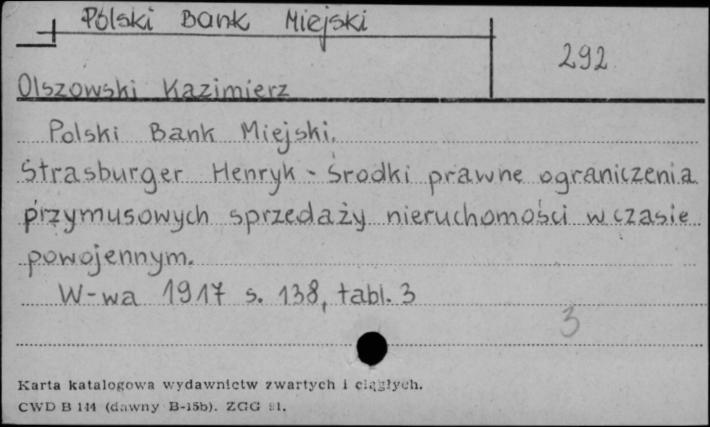 Polski Bank Miejski
292
Olszowski Kazimierz
Polski Bank Miejski.
Strasburger Henryk - Środki prawne ograniczenia
przymusowych sprzedaży nieruchomości w czasie
powojennym.
W-wa 1917 s. 138, tabl. 3
3
Karta katalogowa wydawnictw zwartych i ciągłych.
CWD B 144 (dawny B-15b). ZGG